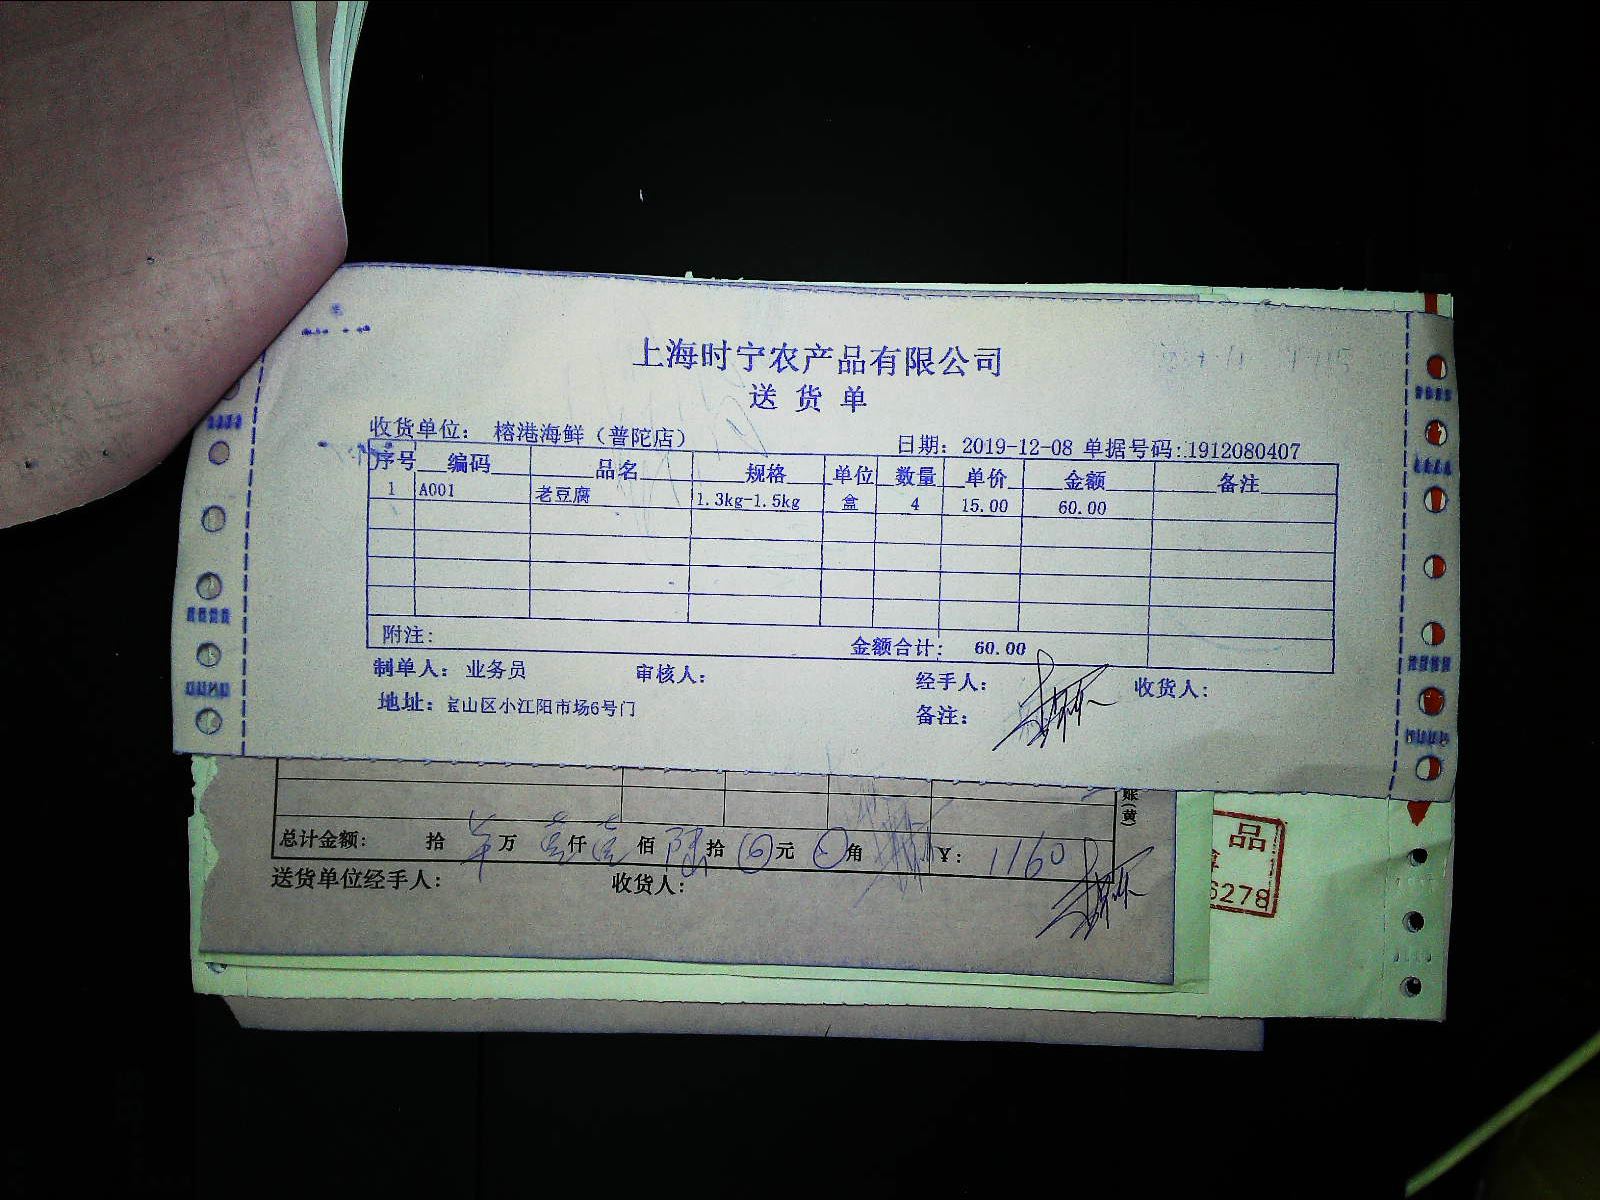 上海时宁农产品有限公司
送货单
收货单位： 榕港海鲜（普陀店） 日期：2019-12-08 单据号码：1912080407
序号 编码 品名 规格 单位 数量 单价 金额 备注
1 A001 老豆腐 1.3kg-1.5kg 盒 4 15.00 60.00
附注： 金额合计： 60.00
制单人： 业务员 审核人： 经手人： 收货人：
地址：宝山区小江阳市场6号门 备注：
账(黄)
总计金额： 拾 万 壹仟 壹佰 陆拾 元 角 ¥：1160
送货单位经手人： 收货人：
品
6278